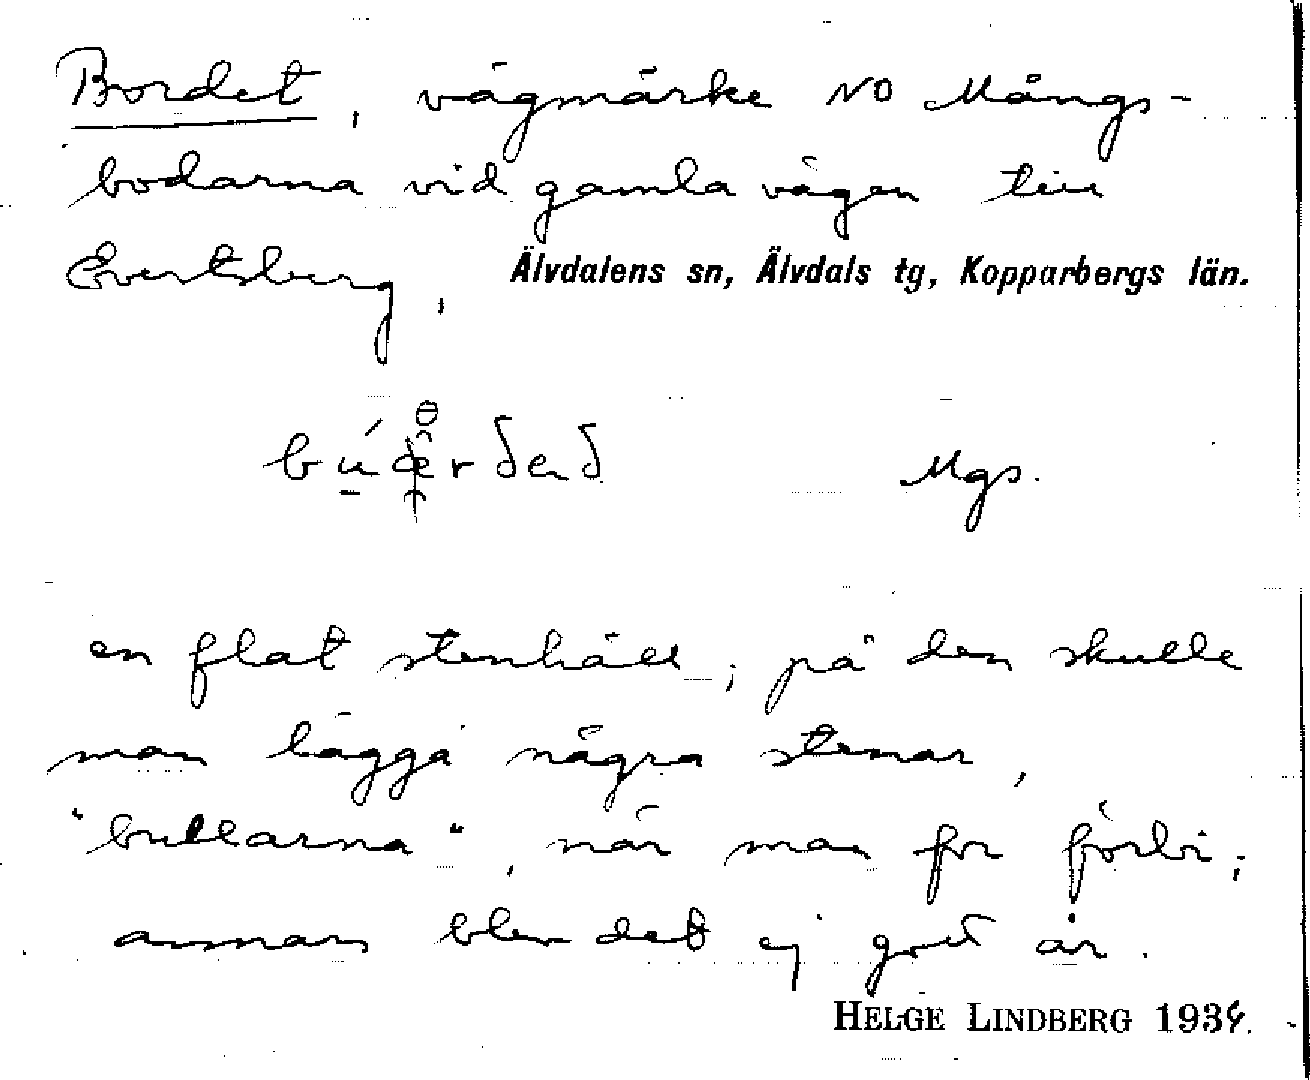 Bordet, vägmärke NO Mångs-
bodarna vid gamla vägen till
Evertsberg, Älvdalens sn, Älvdals tg, Kopparbergs län.
Mgs.
en flat stenhäll; på den skulle
man lägga några stenar,
"bullarna", när man for förbi;
annars blev det ej gott år.
HELGE LINDBERG 193